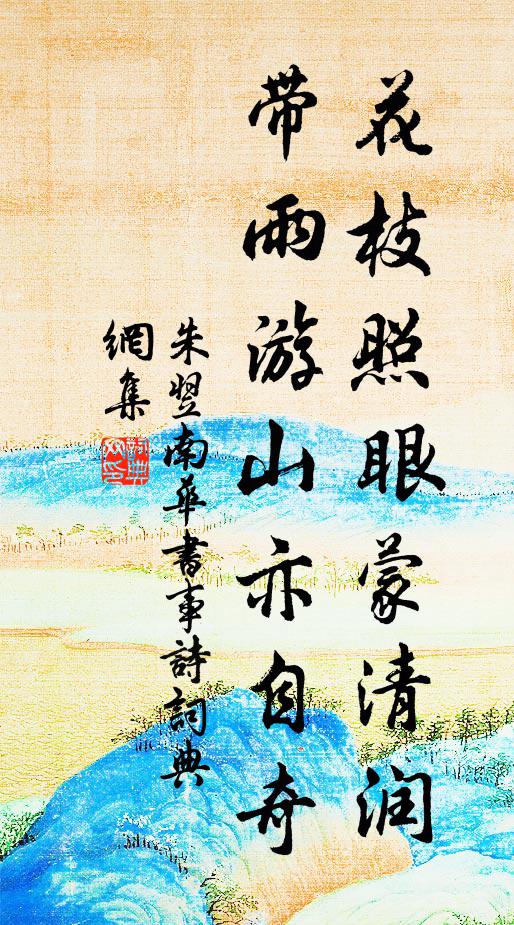 花枝照眼蒙清润
带雨游山亦自奇
朱翌南華書事詩詞典
網集